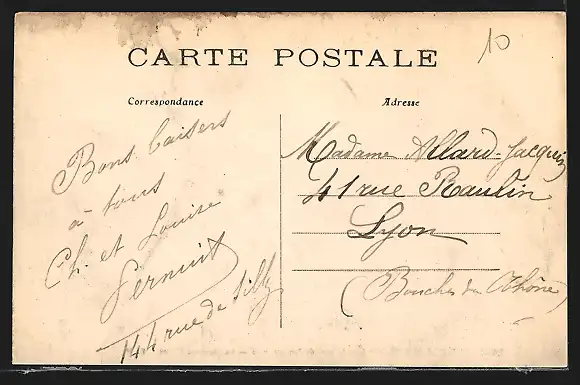 CARTE POSTALE
10
Correspondance
Adresse
Bons baisers
à tous
Ch. et Louise
144 rue de Silly
Madame Allard-Jacquin
41 rue Raulin
Lyon
(Bouches du Rhône)